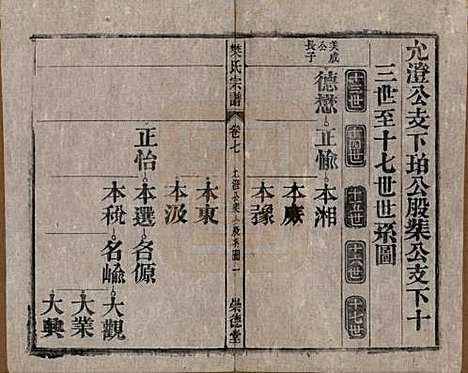 允澄公支下珀公股棠公支下十
三世至十七世世系圖
十三世
十四世
十五世
十六世
十七世
美成公長子
德懋
正愉
本湘
本廉
本豫
樊氏宗譜
卷七
允澄公支
股系圖一
崇德堂
本東
本汲
正怡
本選
各源
本稅
名崳
大觀
大業
大興